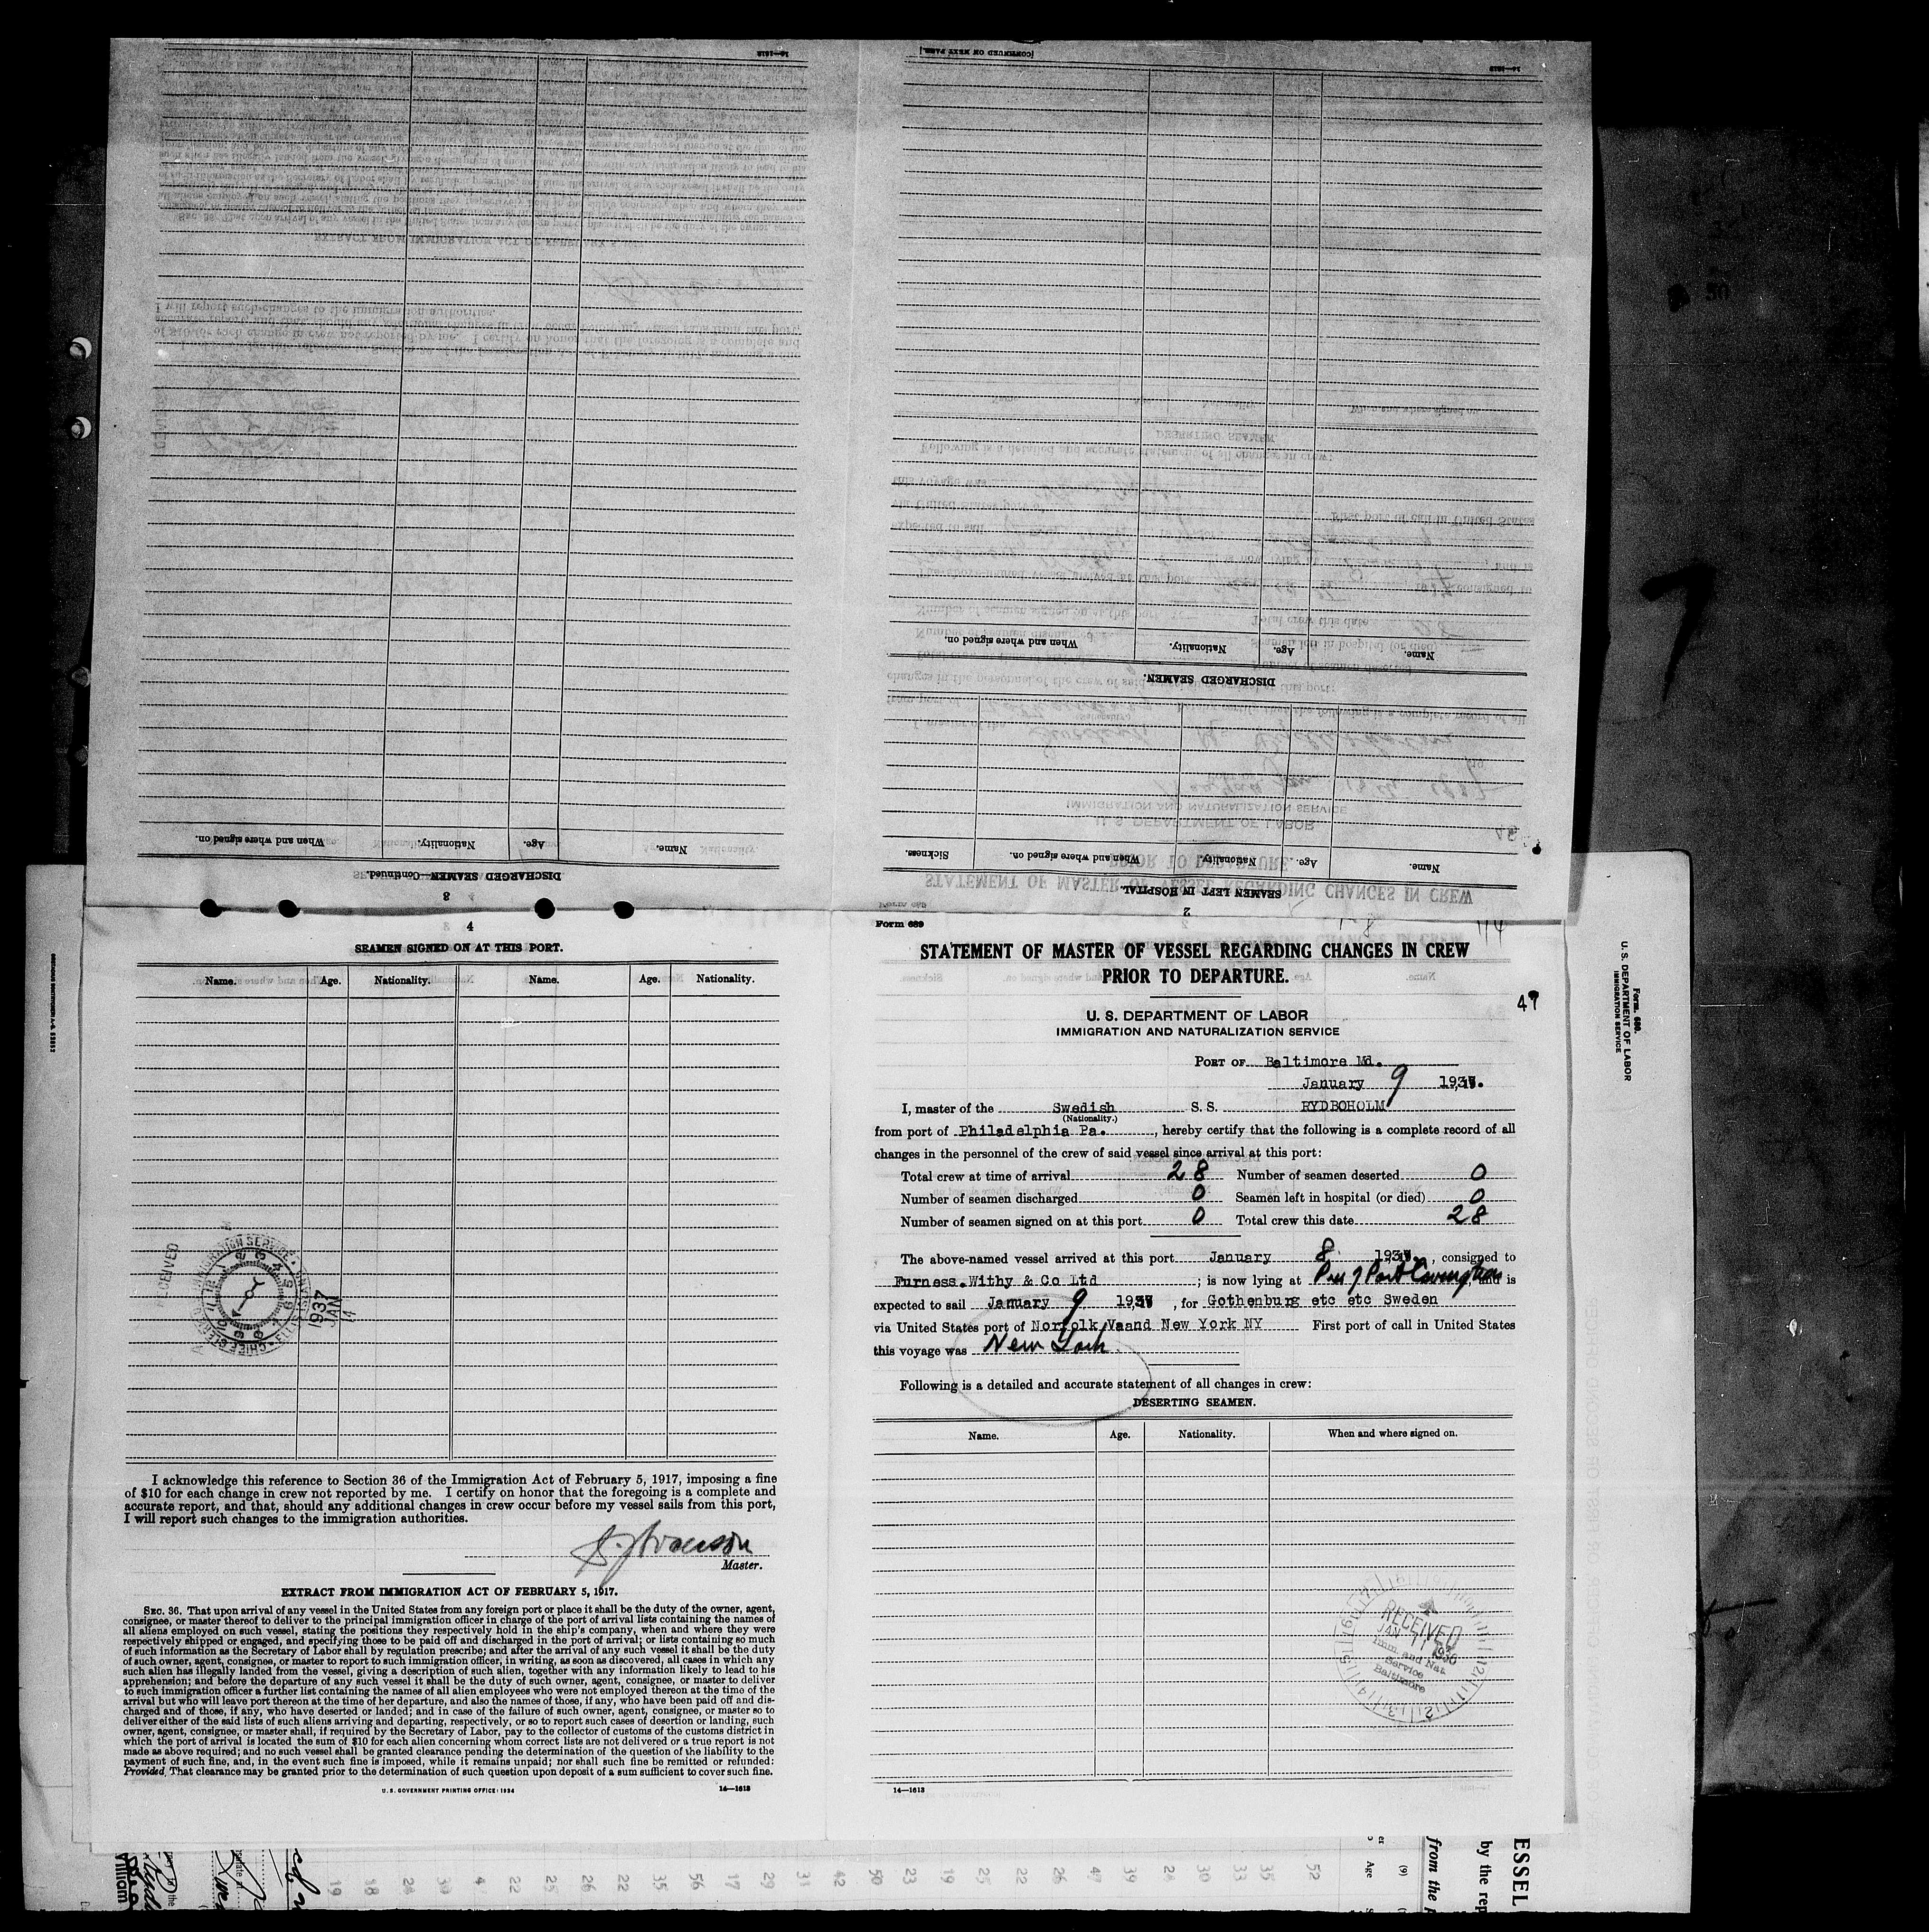 4
SEAMEN SIGNED ON AT THIS PORT.
Name. Age. Nationality. Name. Age. Nationality.
RECEIVED
1937
JAN
14
I acknowledge this reference to Section 36 of the Immigration Act of February 5, 1917, imposing a fine
of $10 for each change in crew not reported by me. I certify on honor that the foregoing is a complete and
accurate report, and that, should any additional changes in crew occur before my vessel sails from this port,
I will report such changes to the immigration authorities.
Master.
EXTRACT FROM IMMIGRATION ACT OF FEBRUARY 5, 1917.
SEC. 36. That upon arrival of any vessel in the United States from any foreign port or place it shall be the duty of the owner, agent,
consignee, or master thereof to deliver to the principal immigration officer in charge of the port of arrival lists containing the names of
all aliens employed on such vessel, stating the positions they respectively hold in the ship's company, when and where they were
respectively shipped or engaged, and specifying those to be paid off and discharged in the port of arrival; or lists containing so much
of such information as the Secretary of Labor shall by regulation prescribe; and after the arrival of any such vessel it shall be the duty
of such owner, agent, consignee, or master to report to such immigration officer, in writing, as soon as discovered, all cases in which any
such alien has illegally landed from the vessel, giving a description of such alien, together with any information likely to lead to his
apprehension; and before the departure of any such vessel it shall be the duty of such owner, agent, consignee, or master to deliver
to such immigration officer a further list containing the names of all alien employees who were not employed thereon at the time of the
arrival but who will leave port thereon at the time of her departure, and also the names of those, if any, who have been paid off and dis-
charged and of those, if any, who have deserted or landed; and in case of the failure of such owner, agent, consignee, or master so to
deliver either of the said lists of such aliens arriving and departing, respectively, or so to report such cases of desertion or landing, such
owner, agent, consignee, or master shall, if required by the Secretary of Labor, pay to the collector of customs of the customs district in
which the port of arrival is located the sum of $10 for each alien concerning whom correct lists are not delivered or a true report is not
made as above required; and no such vessel shall be granted clearance pending the determination of the question of the liability to the
payment of such fine, and, in the event such fine is imposed, while it remains unpaid; nor shall such fine be remitted or refunded:
Provided, That clearance may be granted prior to the determination of such question upon deposit of a sum sufficient to cover such fine.
U. S. GOVERNMENT PRINTING OFFICE: 1934 14—1613
Form 689
STATEMENT OF MASTER OF VESSEL REGARDING CHANGES IN CREW
PRIOR TO DEPARTURE.
47
U. S. DEPARTMENT OF LABOR
IMMIGRATION AND NATURALIZATION SERVICE
PORT OF Baltimore Md.
January 9 1937.
I, master of the Swedish S. S. RYDBOHOLM
(Nationality.)
from port of Philadelphia Pa. , hereby certify that the following is a complete record of all
changes in the personnel of the crew of said vessel since arrival at this port:
Total crew at time of arrival 28 Number of seamen deserted 0
Number of seamen discharged 0 Seamen left in hospital (or died) 0
Number of seamen signed on at this port 0 Total crew this date 28
The above-named vessel arrived at this port January 8 1937. , consigned to
Furness.Withy & Co Ltd ; is now lying at Pier 7 Port Covington, and is
expected to sail January 9 1937 , for Gothenburg etc etc Sweden
via United States port of Norfolk Vaand New York NY First port of call in United States
this voyage was New York
Following is a detailed and accurate statement of all changes in crew:
DESERTING SEAMEN.
Name. Age. Nationality. When and where signed on.
RECEIVED
JAN 11
Imm. and Nat
Service
Baltimore
14—1613
2
SEAMEN LEFT IN HOSPITAL.
Name. Age. Nationality. When and where signed on. Sickness.
DISCHARGED SEAMEN.
Name. Age. Nationality. When and where signed on.
[CONTINUED ON NEXT PAGE.]
14—1613
3
DISCHARGED SEAMEN—Continued.
Name. Age. Nationality. When and where signed on.
14—1613
Form 689.
U. S. DEPARTMENT OF LABOR
IMMIGRATION SERVICE
ESSEL
by the rep
from the
(9)
Age
52 35 33 30 28 39 47 22 25 19 23 50 42 31 29 17 56 35 22 25 22 4 30 28 18 19